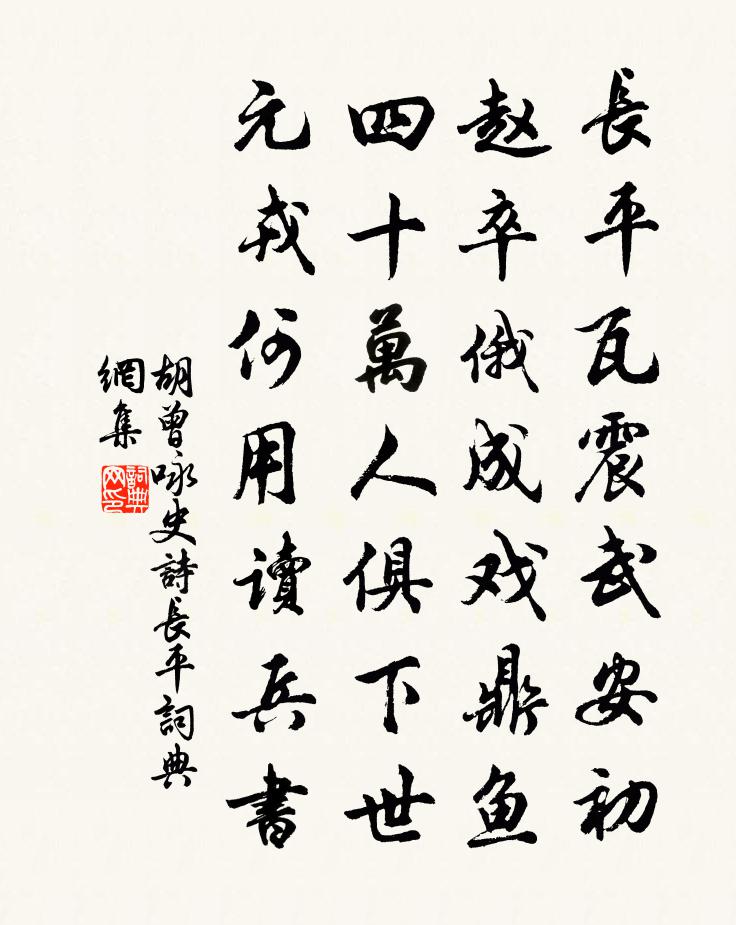 長平瓦震武安初
赵卒俄成戏鼎鱼
四十萬人俱下世
元戎何用讀兵書
胡曾咏史詩長平詞典
網集
詞典
网印